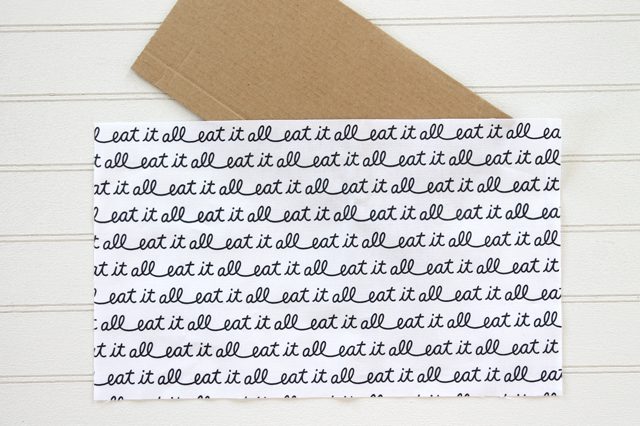 eat it all eat it all eat it all eat it all eat it all ea
t all eat it all eat it all eat it all eat it all eat it all
at it all eat it all eat it all eat it all eat it all eat it
eat it all eat it all eat it all eat it all eat it all ea
t all eat it all eat it all eat it all eat it all eat it all
at it all eat it all eat it all eat it all eat it all eat it
eat it all eat it all eat it all eat it all eat it all ea
t all eat it all eat it all eat it all eat it all eat it all
at it all eat it all eat it all eat it all eat it all eat it
eat it all eat it all eat it all eat it all eat it all ea